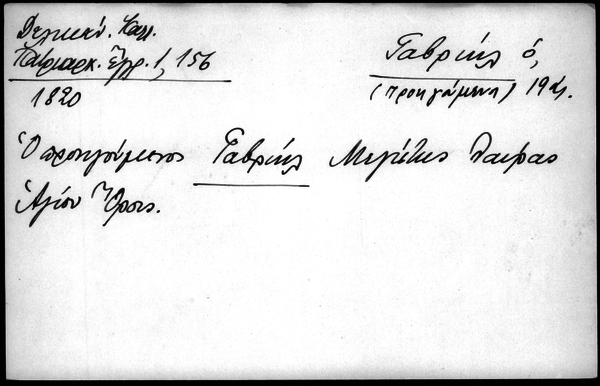 Δελικάν. Καλ.
Πατριαρχ. Ἔγγρ. 1, 156
1820
Γαβριήλ ὁ,
(προηγούμενος) 19 αι.
Ὁ προηγούμενος Γαβριήλ Μεγίστης Λαύρας
Ἁγίου Ὄρους.